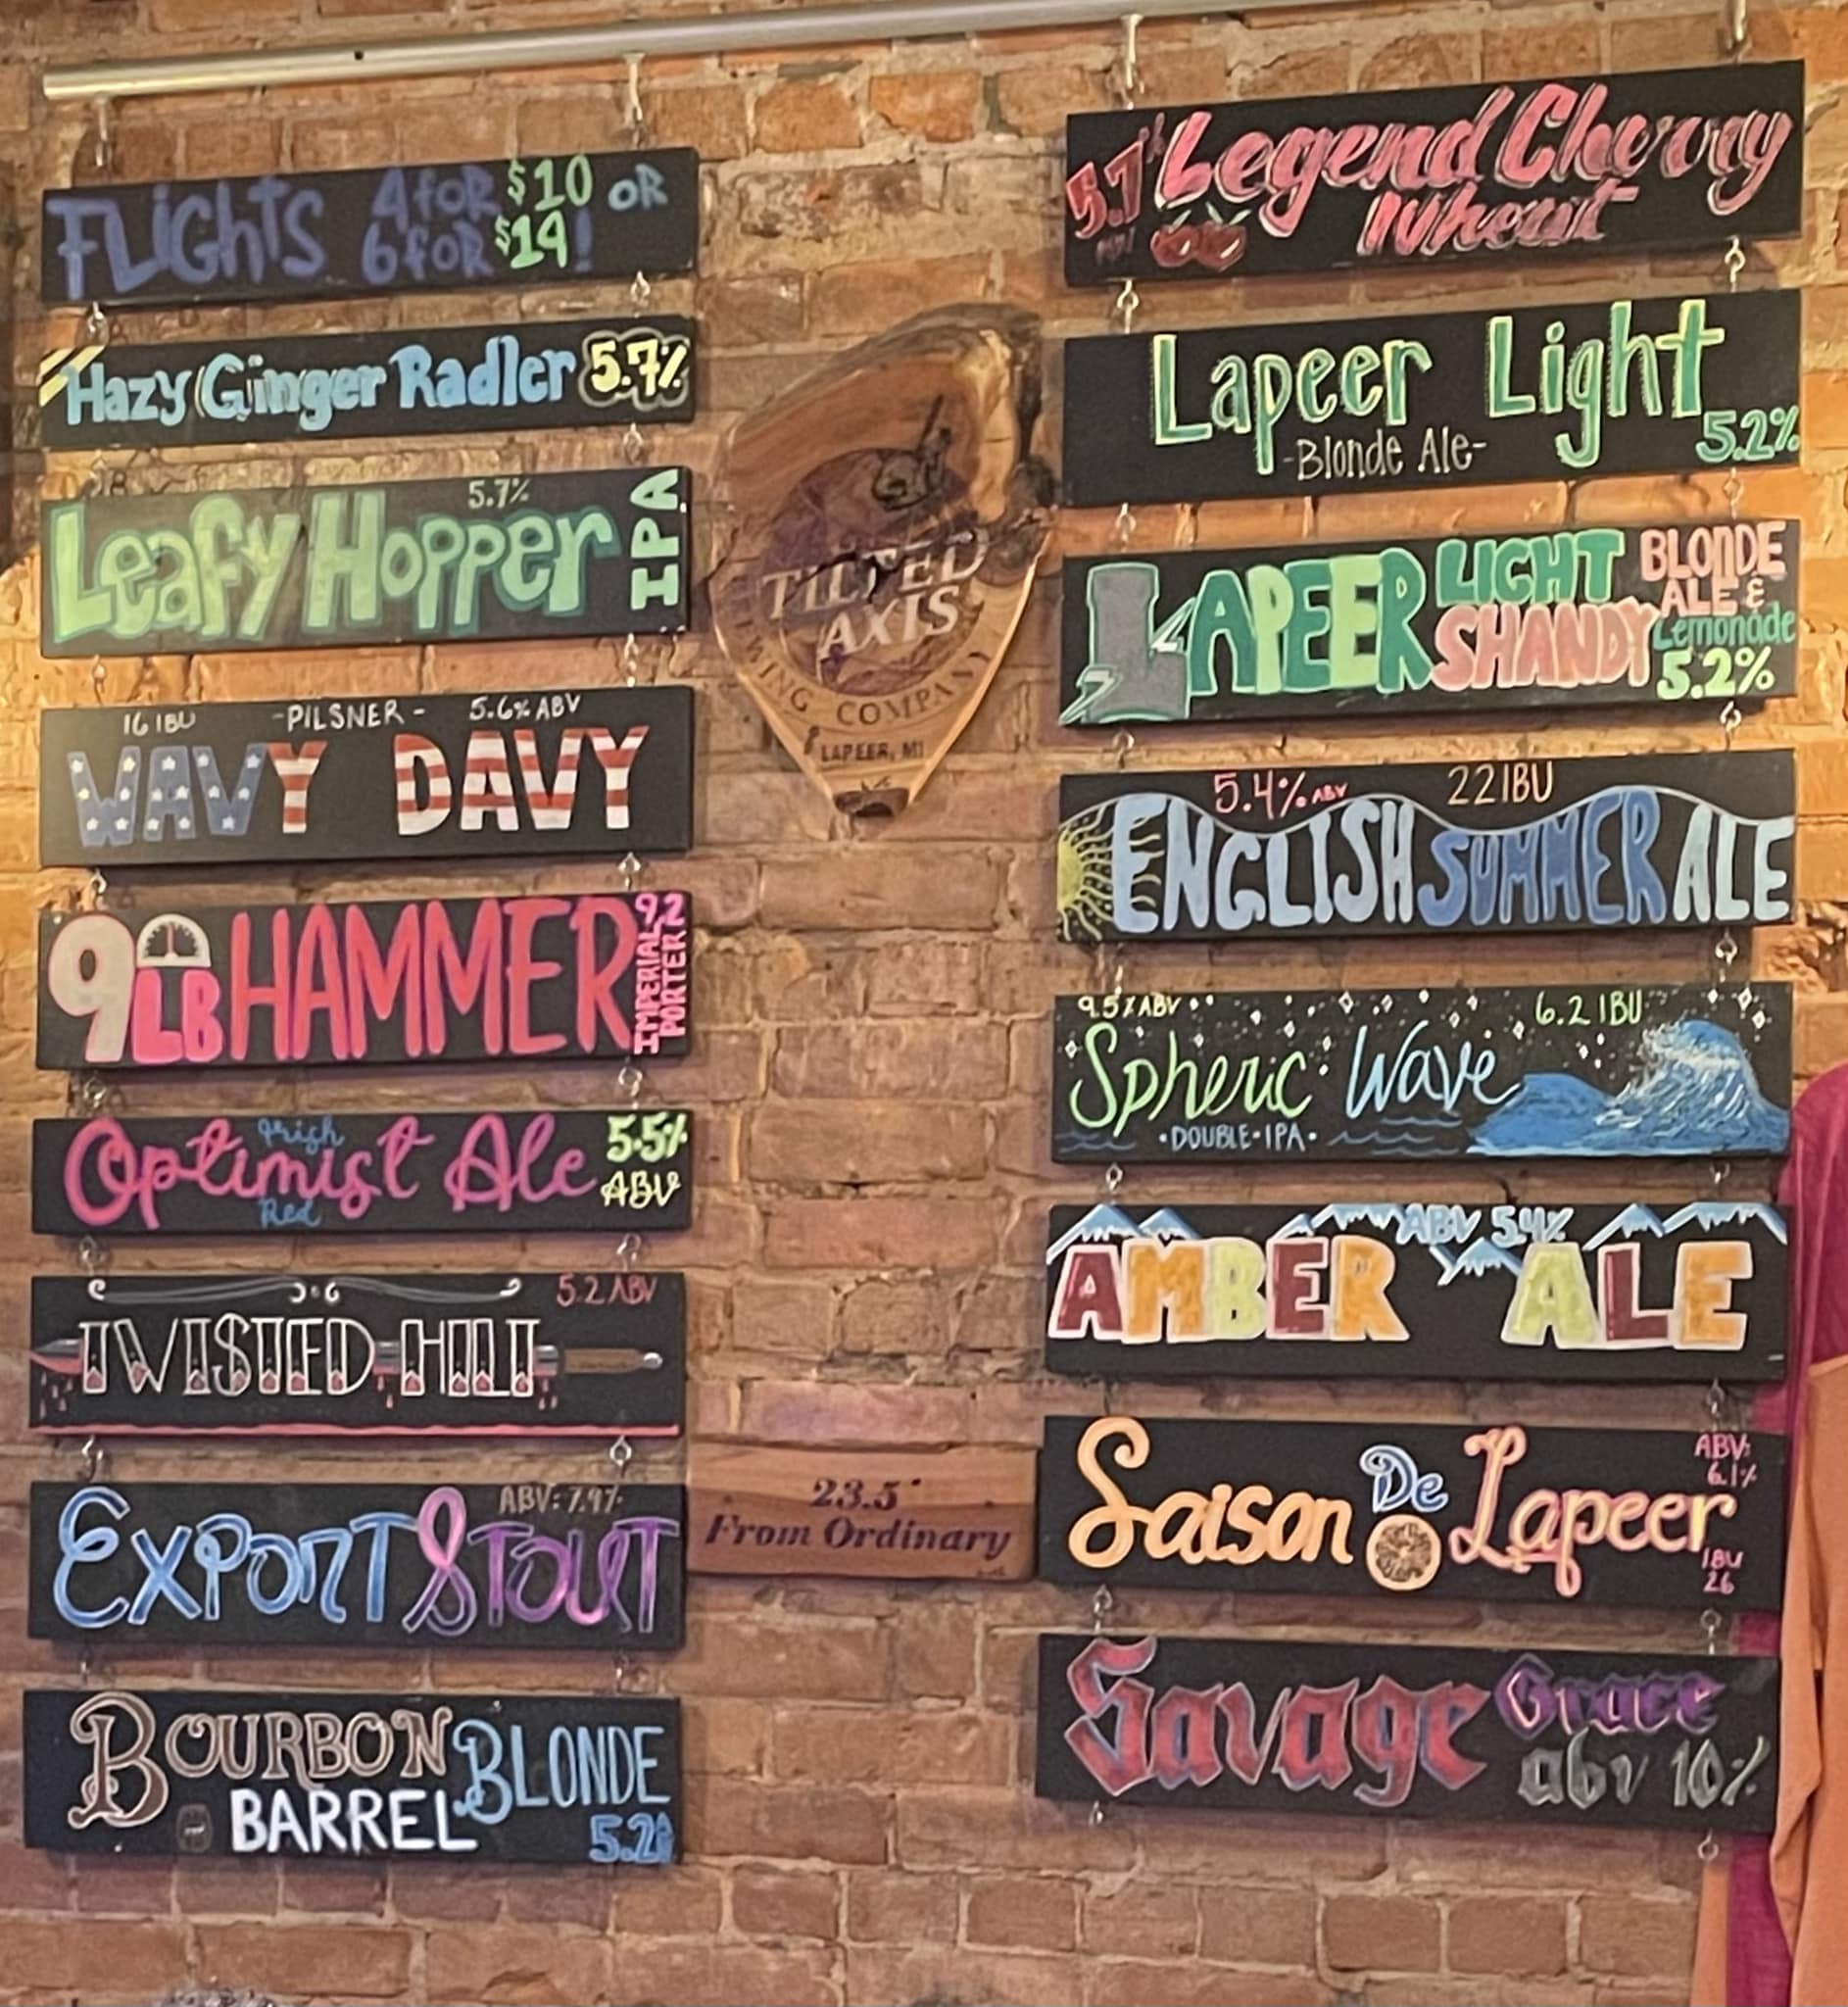 FLiGhTS 4 foR $10 oR
6 foR $14!
Hazy Ginger Radler 5.7%
5.7%
Leafy Hopper IPA
16 IBU -PILSNER- 5.6% ABV
WAVY DAVY
9LB HAMMER 9.2
IMPERIAL
PORTER
Irish
Optimist Ale 5.5%
Red ABV
5.2 ABV
TWISTED HILT
ABV: 7.9%
EXPORT STOUT
BOURBON BLONDE
BARREL
TILTED
AXIS
BREWING COMPANY
LAPEER, MI
23.5°
From Ordinary
Legend Cherry
Wheat
Lapeer Light
-Blonde Ale-
5.2%
LAPEER LIGHT
SHANDY
BLONDE
ALE &
Lemonade
5.2%
5.4% ABV 22 IBU
ENGLISH SUMMER ALE
9.5% ABV 6.2 IBU
Spheric Wave
·DOUBLE·IPA·
ABV 5.4%
AMBER ALE
ABV:
6.1%
Saison De Lapeer
IBU
26
Savage Grace
abv 10%